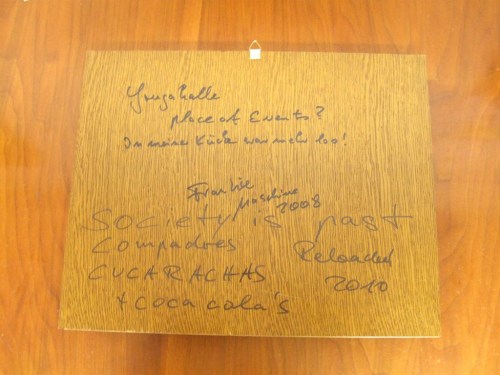 Yongahalle
place of Events?
In meiner Küche war mehr los!
Frankie
Maschine
2008
Society is past
Compadres
Reloaded
CUCARACHAS
2010
+ coca cola's